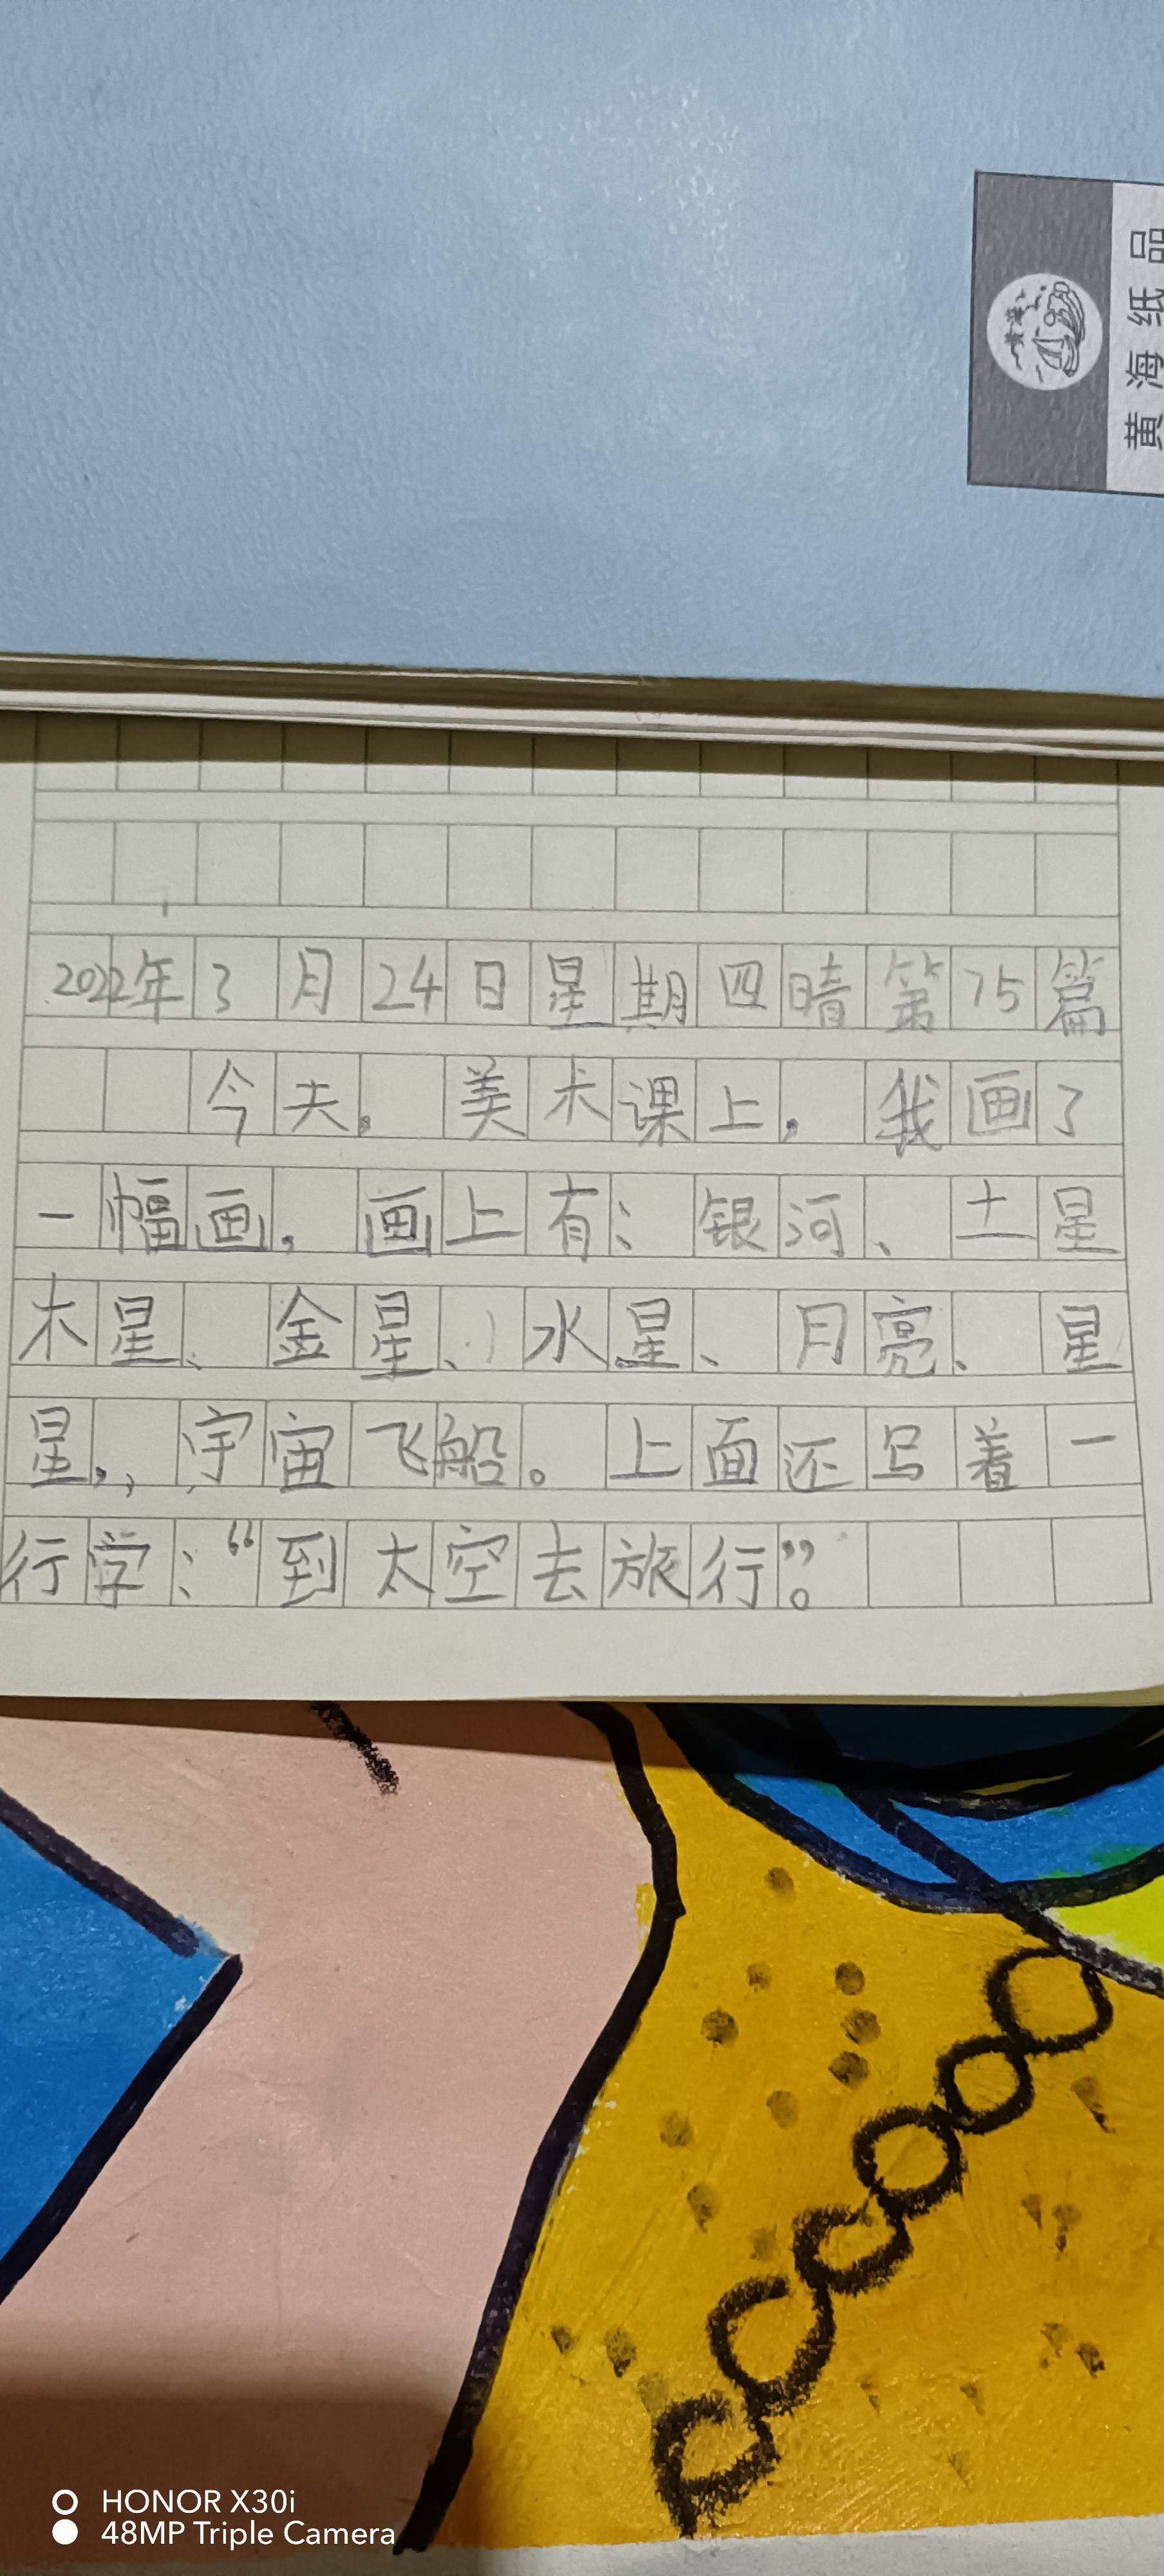 黄海纸品
2022年3月24日星期四晴第75篇
今天,美术课上,我画了
一幅画,画上有:银河、土星
木星、金星、水星、月亮、星
星,,宇宙飞船。上面还写着一
行字:“到太空去旅行”。
HONOR X30i
48MP Triple Camera